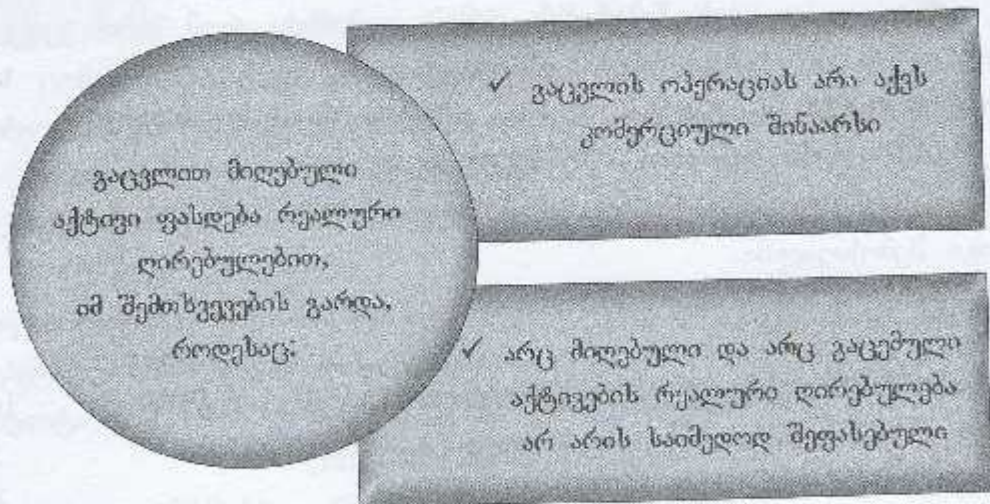 გაცვლით მიღებული
აქტივი ფასდება რეალური
ღირებულებით,
იმ შემთხვევების გარდა,
როდესაც:
✓ გაცვლის ოპერაციას არა აქვს
კომერციული შინაარსი
✓ არც მიღებული და არც გაცემული
აქტივების რეალური ღირებულება
არ არის საიმედოდ შეფასებული